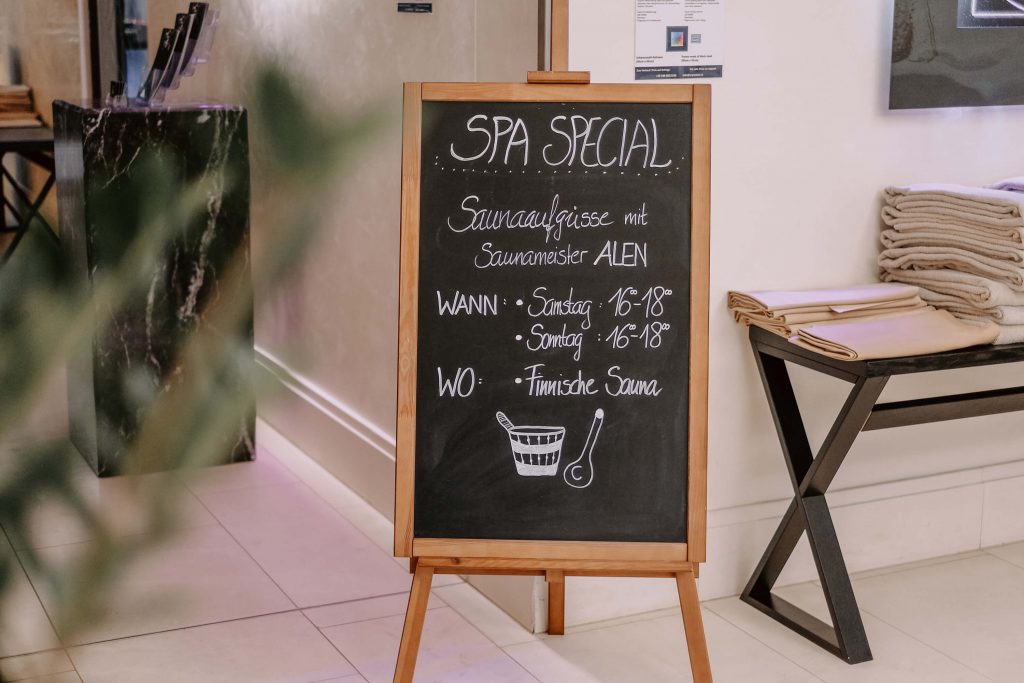 SPA SPECIAL
Saunaaufgüsse mit
Saunameister ALEN
WANN: • Samstag : 16⁰⁰-18⁰⁰
• Sonntag : 16⁰⁰-18⁰⁰
WO: • Finnische Sauna